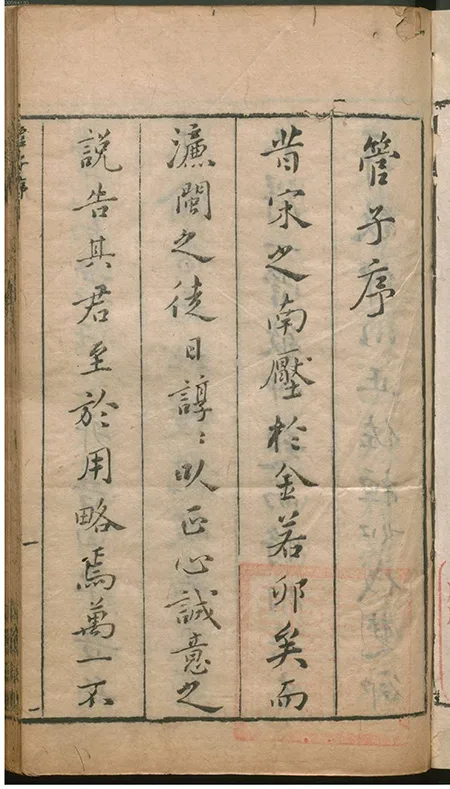 管子序
昔宋之南壓於金若卵矣而
濂閩之徒日諄〻以正心誠意之
說告其君至於用略焉萬一不
管子序
一